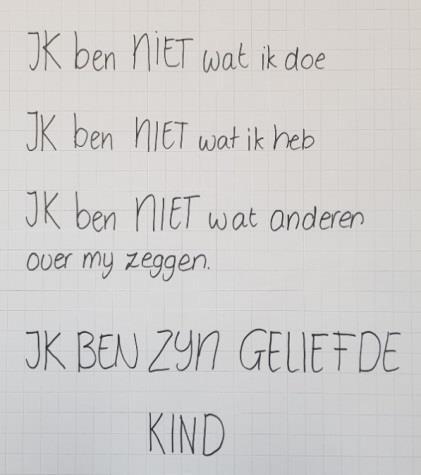 IK ben NIET wat ik doe
IK ben NIET wat ik heb
IK ben NIET wat anderen
over my zeggen.
IK BEN ZYN GELIEFDE
KIND